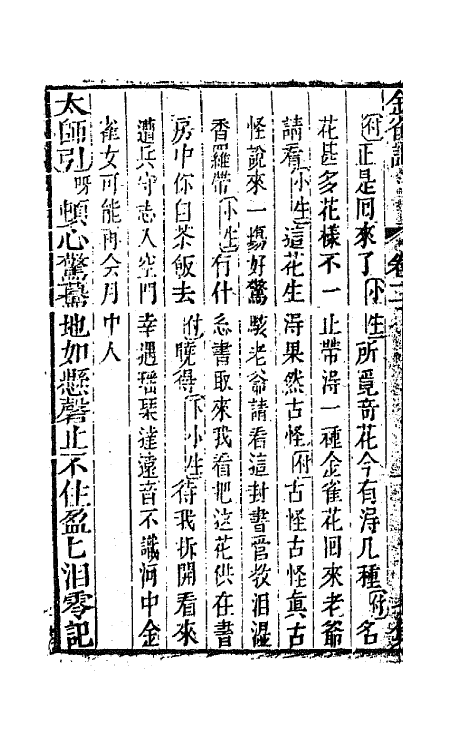 付正是回來了小生所覓奇花今有淂几種付名
花甚多花樣不一止帶淂一種金雀花回來老爺
請看小生這花生淂果然古怪付古怪古怪真古
怪說來一塲好驚駭老爺請看這封書管教泪濕
香羅帶小生有什么書取來我看把这花供在書
房中你自茶飯去付曉得下小生待我拆開看來
遭兵守志入空門幸遇瑶琹達遠音不識河中金
雀女可能再会月中人
太師引呀頓心驚驀地如懸磬止不住盈七泪零記